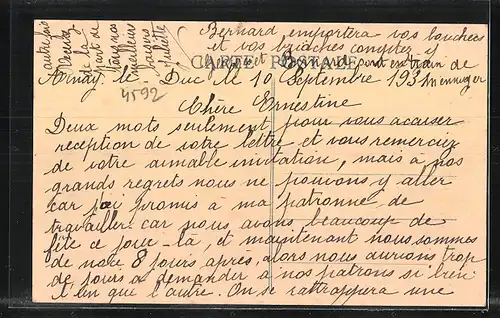 Bernard emportera vos bouchées
et vos brioches comptez y
et Bernard sont en train de
CARTE POSTALE
mennuyer
Arnay-le-Duc le 10 Septembre 1931
4592
Chère Ernestine
Deux mots seulement pour vous accuser
réception de votre lettre et vous remercier
de votre aimable invitation, mais à nos
grands regrets nous ne pouvons y aller
car j'ai promis à ma patronne de
travailler car nous avons beaucoup de
fête ce jour-là, et maintenant nous sommes
de noce 8 jours après, alors nous aurions trop
de jours à demander à nos patrons si bien
l'un que l'autre. On se rattrapera une
autrefois
de la
part de